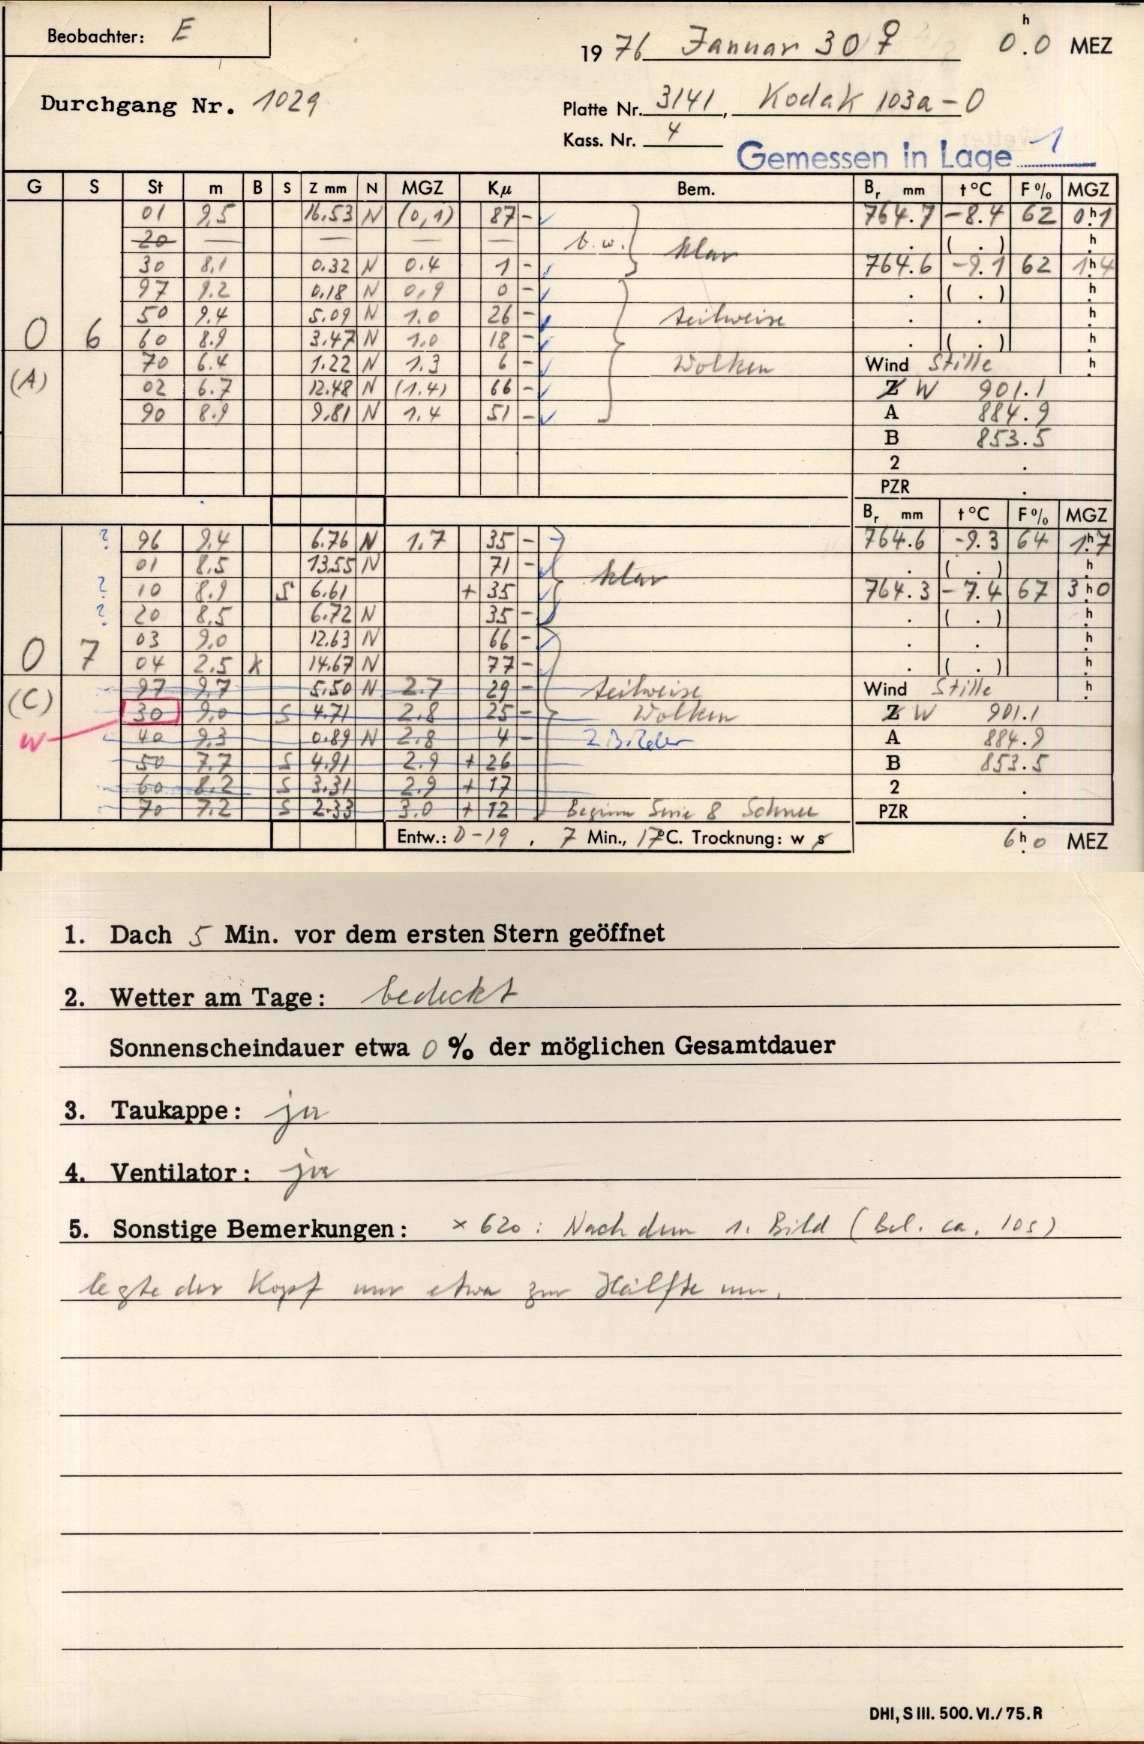 Beobachter: E
1976 Januar 30 ♀ 0.0ʰ MEZ
Durchgang Nr. 1029
Platte Nr. 3141, Kodak 103a-O
Kass. Nr. 4
Gemessen in Lage 1
G S St m B S Z mm N MGZ Kμ Bem. Bᵣ mm t°C F% MGZ
01 9,5 16.53 N (0,1) 87 - 764.7 -8.4 62 0ʰ1
20 — — — — b.w. klar . ( . ) ʰ
30 8,1 0.32 N 0.4 1 - 764.6 -9.1 62 1ʰ4
97 9.2 0.18 N 0,9 0 - . ( . ) ʰ
50 9.4 5.09 N 1.0 26 - teilweise . . ʰ
0 6 60 8.9 3.47 N 1.0 18 - . ( . ) ʰ
70 6.4 1.22 N 1.3 6 - Wolken Wind Stille ʰ
(A) 02 6.7 12.48 N (1.4) 66 - Z W 901.1
90 8.9 9.81 N 1.4 51 - A 884.9
B 853.5
2 .
PZR .
Bᵣ mm t°C F% MGZ
? 96 9.4 6.76 N 1.7 35 - 764.6 -9.3 64 1ʰ7
01 8.5 13.55 N 71 - klar . ( . ) ʰ
? 10 8.9 S 6.61 + 35 764.3 -7.4 67 3ʰ0
? 20 8,5 6.72 N 35 - . ( . ) ʰ
03 9,0 12.63 N 66 - . . ʰ
0 7 04 2.5 K 14.67 N 77 - . ( . ) ʰ
97 9.7 5.50 N 2.7 29 - teilweise Wind Stille ʰ
(C) 30 9.0 S 4.71 2.8 25 - Wolken Z W 901.1
W 40 9.3 0.89 N 2.8 4 - 2 Bilder A 884.9
50 7.7 S 4.91 2.9 + 26 B 853.5
60 8.2 S 3.31 2.9 + 17 2 .
70 7.2 S 2.33 3.0 + 12 Beginn Serie 8 Schnee PZR .
Entw.: D-19, 7 Min., 17°C. Trocknung: w s 6ʰ0 MEZ
1. Dach 5 Min. vor dem ersten Stern geöffnet
2. Wetter am Tage: bedeckt
Sonnenscheindauer etwa 0 % der möglichen Gesamtdauer
3. Taukappe: ja
4. Ventilator: ja
5. Sonstige Bemerkungen: × 620: Nach dem 1. Bild (Bel. ca. 10s)
legte der Kopf nur etwa zur Hälfte um.
DHI, S III. 500. VI./75. R